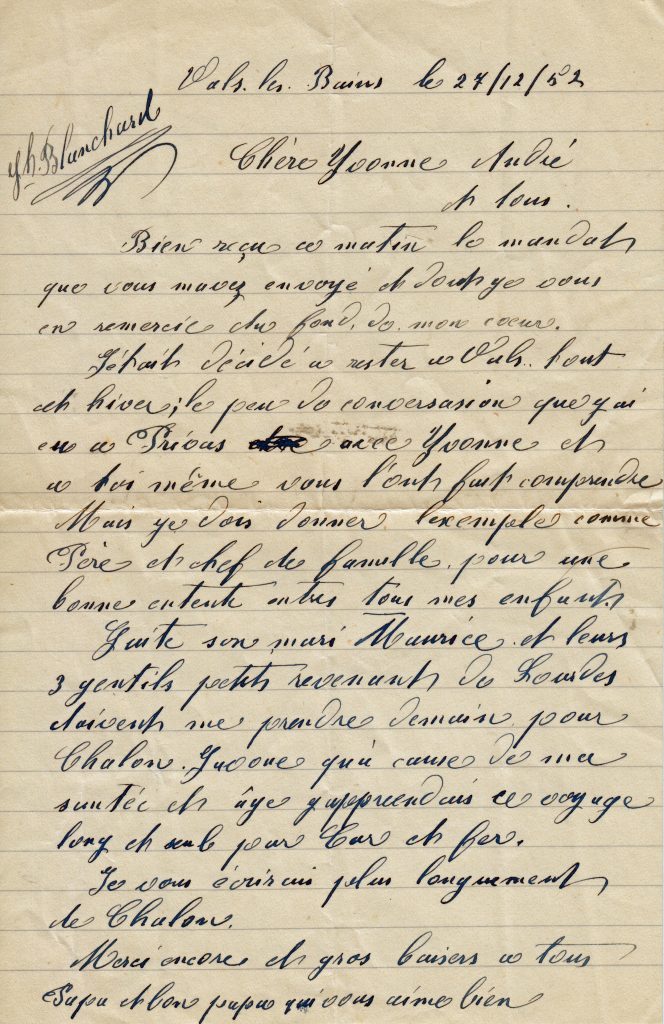 Vals. les. Bains le 27/12/52
Jh. Blanchard
Chère Yvonne André
et tous.
Bien reçu ce matin le mandat
que vous mavez envoyé et dont je vous
en remercie du fond. de. mon cœur.
J'était décidé a rester a Vals.. tout
et hiver, le peu de conversasion que j'ai
eu a Privas avec Yvonne et
a toi même vous l'ont fait comprendre
Mais je dois donner l'exemple comme
Père et chef de famille. pour une
bonne entente entres tous mes enfants
son mari Maurice. et leurs
3 gentils petits revenant de Lourdes
doivent me prendre demain pour
Chalon. J'avoue qu'à cause de ma
santée et âge j'appreendais ce voyage
long et seul pour Car et fer.
Je vous écrirais plus longuement
de Chalon.
Merci encore et gros baisers a tous
Papa et bon papa qui vous aime bien